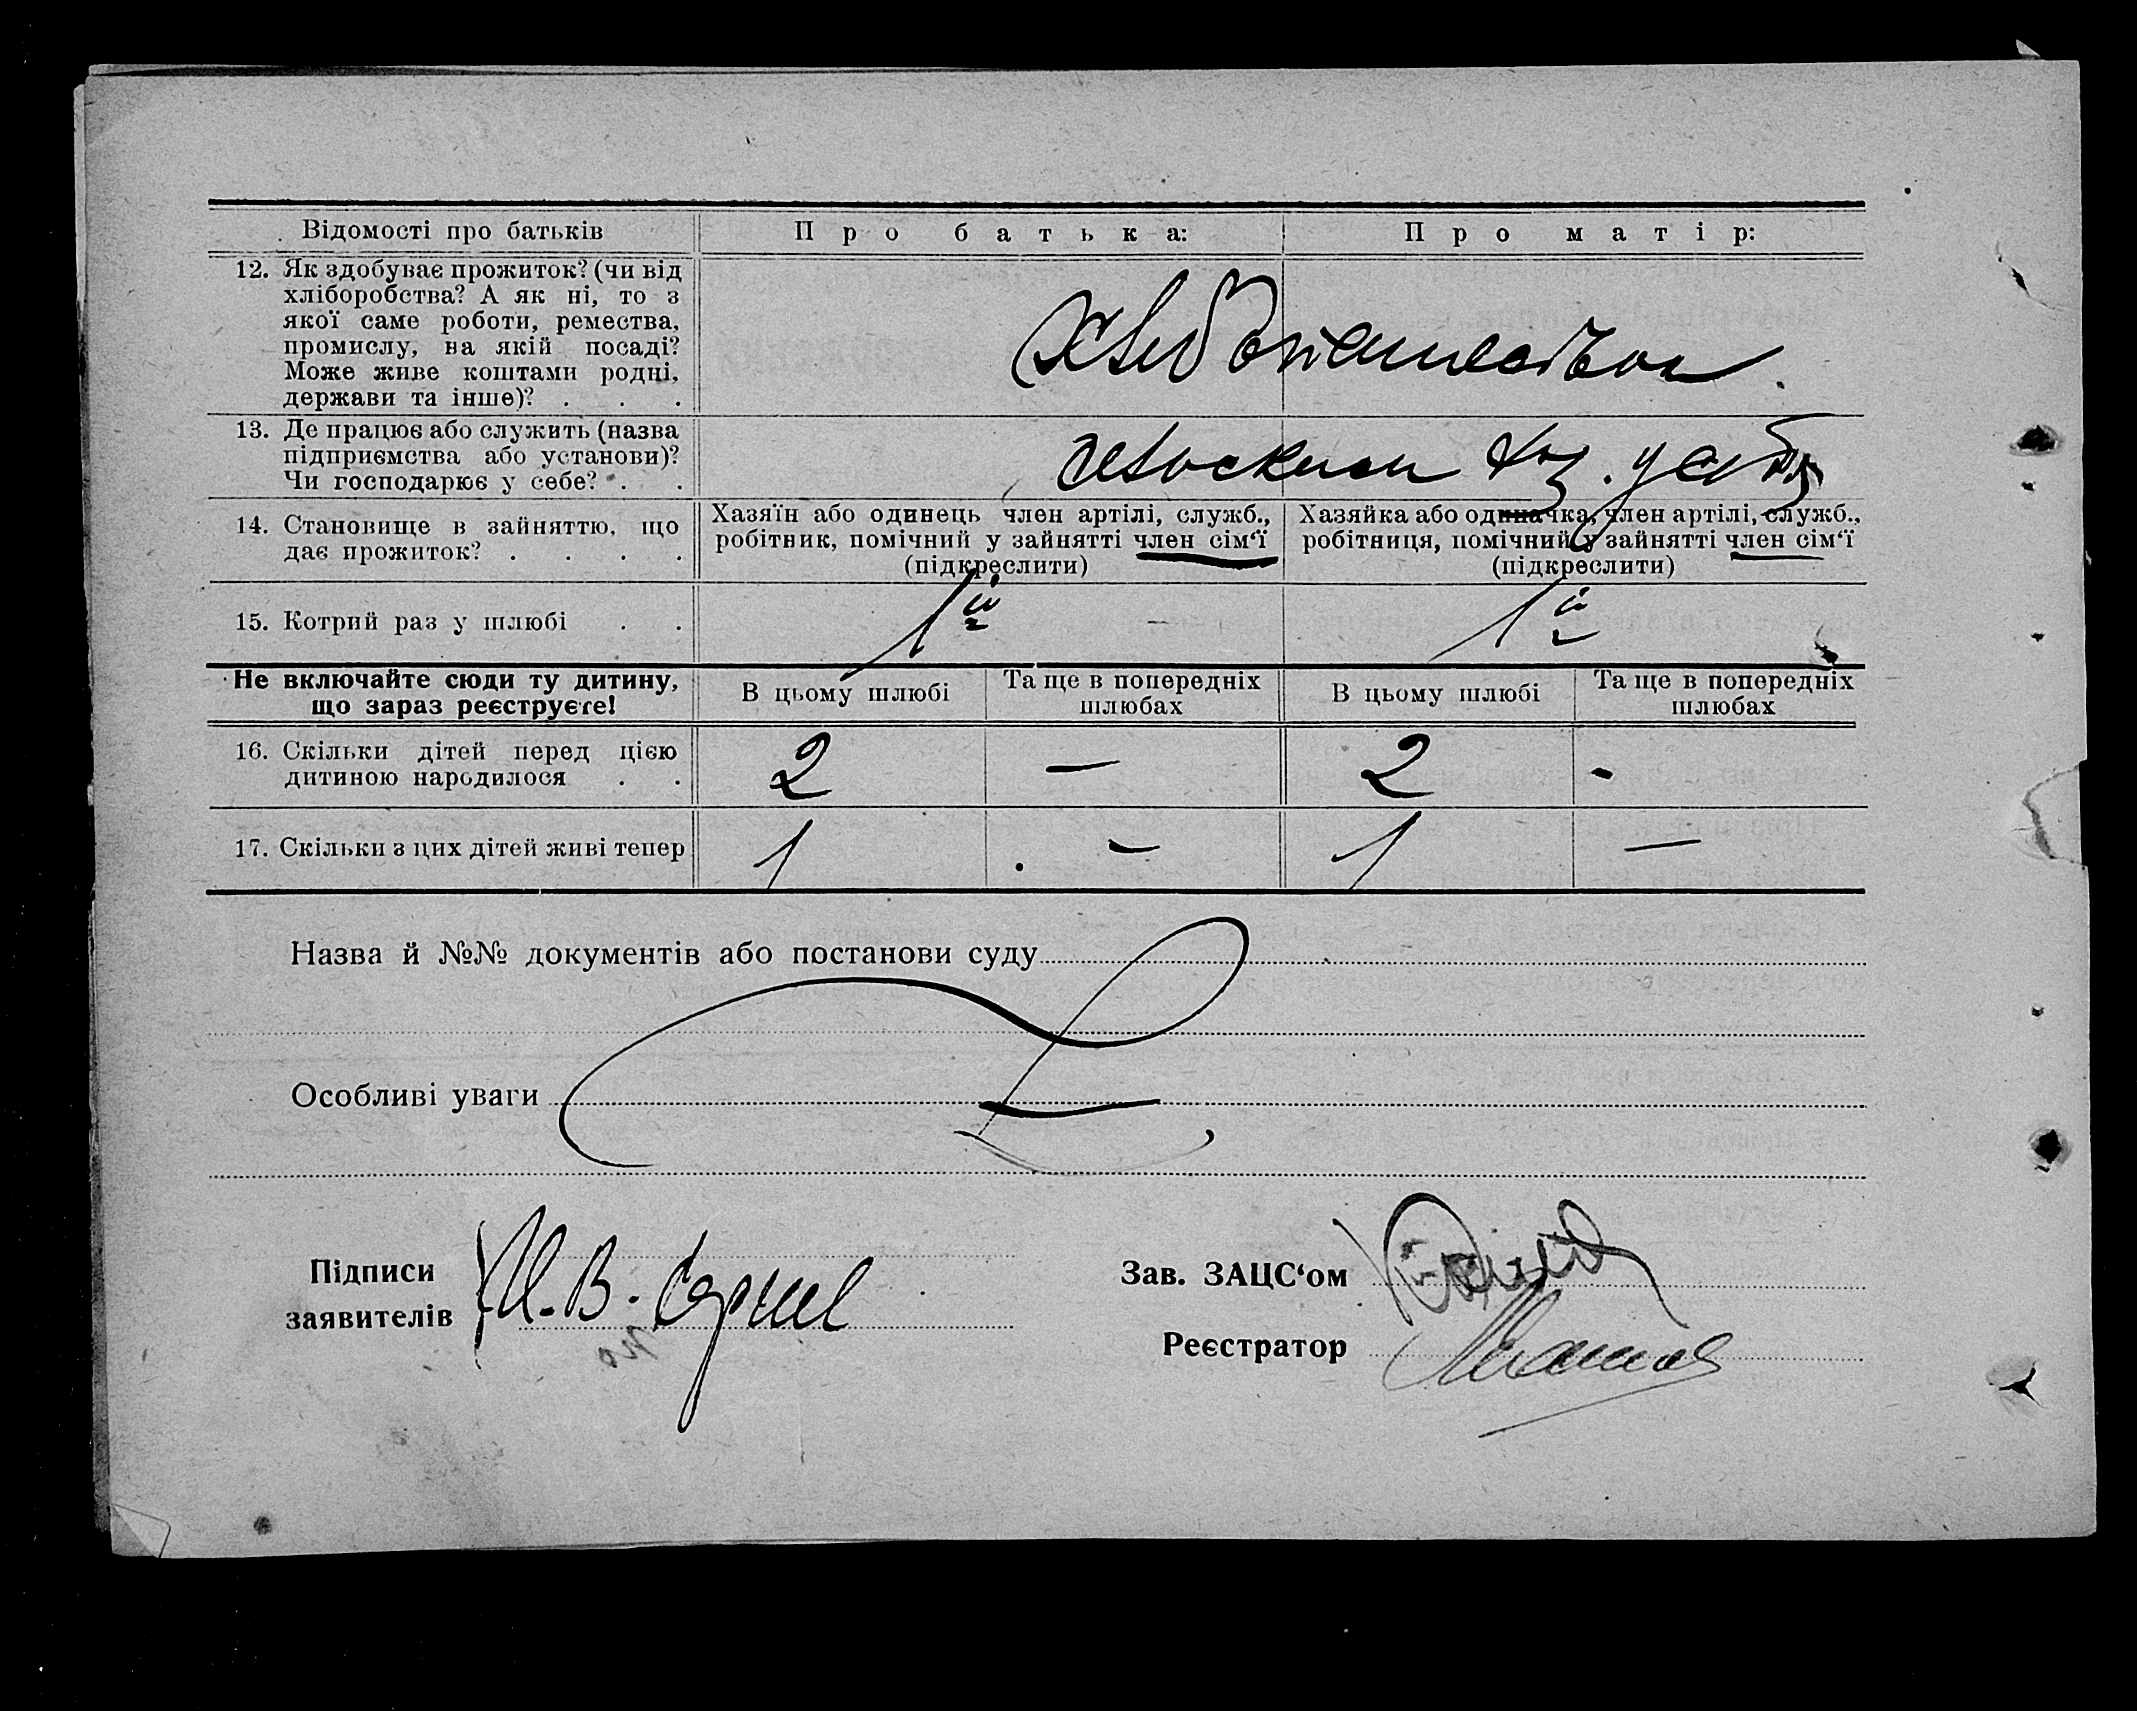 Відомості про батьків
Про батька:
Про матір:
12. Як здобуває прожиток? (чи від
хліборобства? А як ні, то з
якої саме роботи, ремества,
промислу, на якій посаді?
Може живе коштами родні,
держави та інше)? . . .
Хлібопашеством
13. Де працює або служить (назва
підприємства або установи)?
Чи господарює у себе? . .
14. Становище в зайняттю, що
дає прожиток? . . . .
Хазяїн або одинець член артілі, служб.,
робітник, помічний у зайнятті член сім'ї
(підкреслити)
Хазяйка або одиначка, член артілі, служб.,
робітниця, помічний у зайнятті член сім'ї
(підкреслити)
15. Котрий раз у шлюбі . .
1й
1й
Не включайте сюди ту дитину,
що зараз реєструєте!
В цьому шлюбі
Та ще в попередніх
шлюбах
В цьому шлюбі
Та ще в попередніх
шлюбах
16. Скільки дітей перед цією
дитиною народилося . .
2
—
2
-
17. Скільки з цих дітей живі тепер
1
—
1
—
Назва й №№ документів або постанови суду
Особливі уваги
Підписи
заявителів
И. В.
Зав. ЗАЦС'ом
Реєстратор